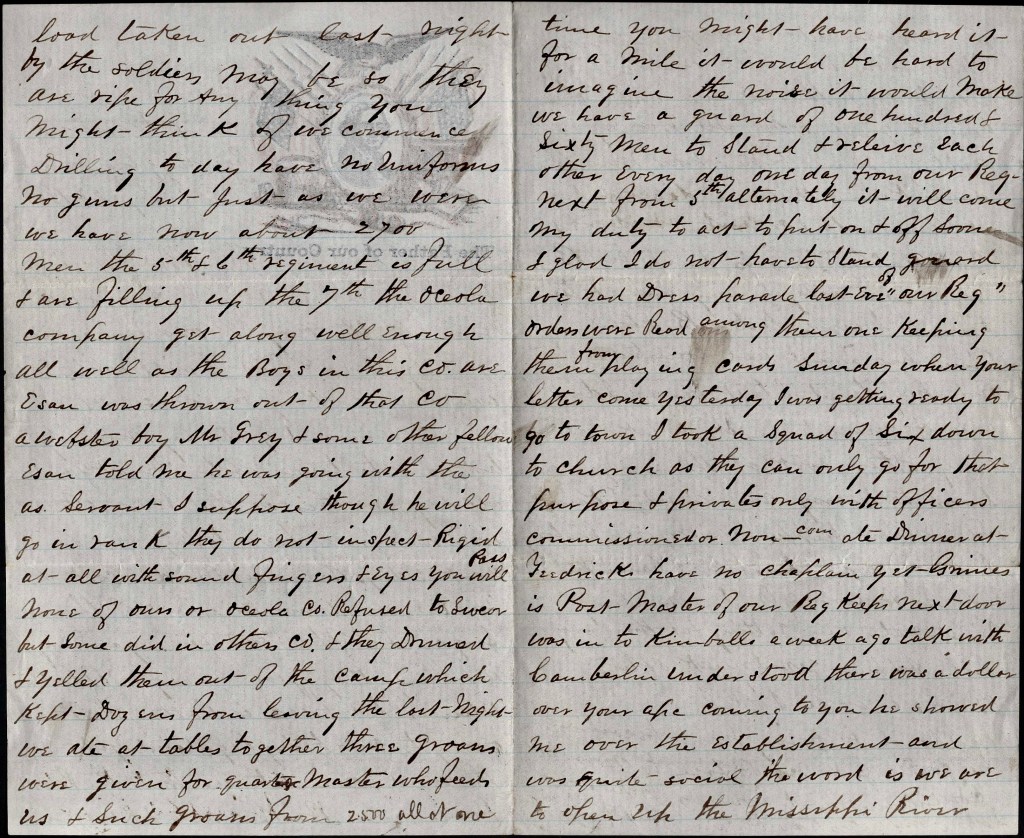 load taken out last night
by the soldiers may be so they
are ripe for any thing you
might think of we commence
Drilling to day have no uniforms
no guns but just as we were
we have now about 2700
men the 5th & 6th regiment is full
& are filling up the 7th the Oceola
company get along well Enough
all well as the Boys in this Co. are
Esau was thrown out of that Co
a webster boy Mr Grey & some other fellow
Esau told me he was going with the
as Servant I suppose though he will
go in rank they do not inspect Rigid
at all with sound fingers & Eyes you will Pass
none of ours or Oceola Co. Refused to Swear
but some did in others Co. & they Drumed
& yelled them out of the camp which
Kept Dozens from leaving the last Night
we ate at tables together three groans
were given for quarter Master who feeds
us & Such groans from 2500 all at one
The Father of our Country
time you might have heard it
for a mile it would be hard to
imagine the noise it would make
we have a guard of one hundred &
Sixty men to Stand & releive Each
other Every day one day from our Reg
next from 5th alternately it will come
my duty to act to put on & off soon
& glad I do not have to Stand guard
we had Dress parade last Eve of "our Reg"
orders were Read among them one Keeping
them from playing cards Sunday when your
letter come yesterday I was getting ready to
go to town I took a Squad of Six down
to church as they can only go for that
purpose & privates only with officers
commissioned or Non-com ate Dinner at
Teedricks have no chaplain yet Grimes
is Post Master of our Reg Keeps next door
was in to Kimballs a week ago talk with
Camberlin understood there was a dollar
over your ape coming to you he showed
me over the Establishment and
was quite social the word is we are
to open up the Missippi River